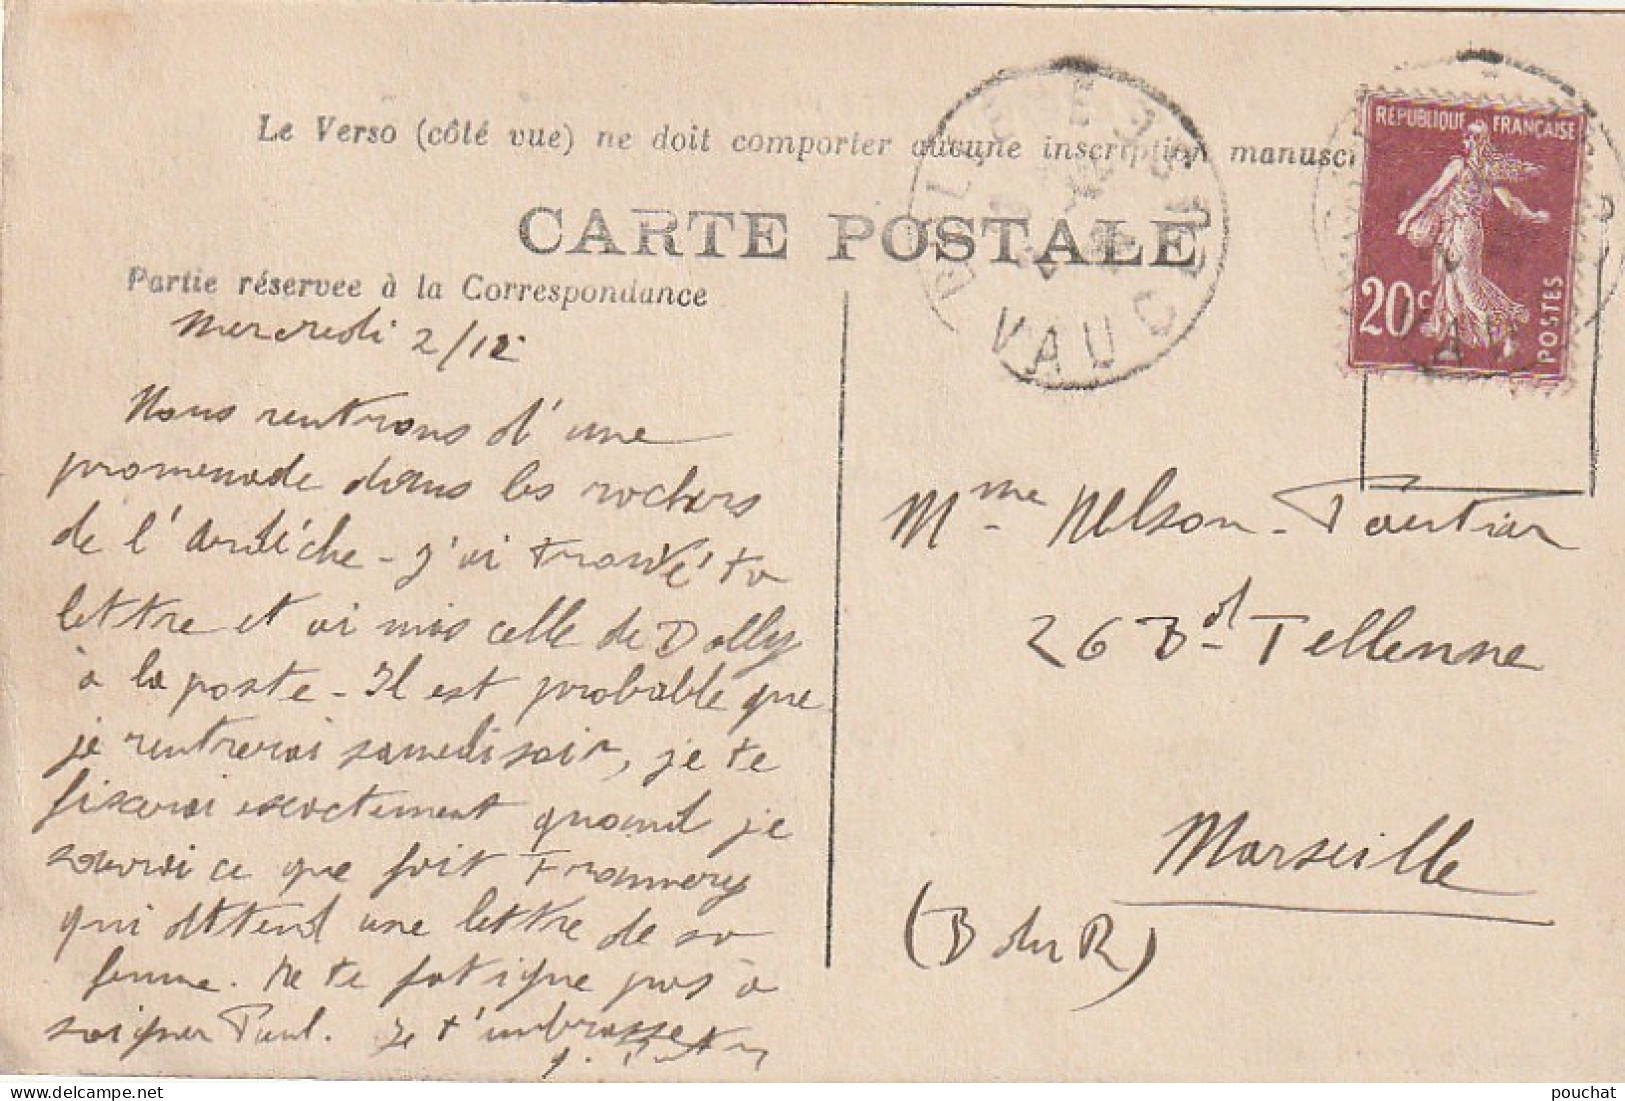 Le Verso (côté vue) ne doit comporter aucune inscription manusc
CARTE POSTALE
REPUBLIQUE FRANÇAISE
20c
POSTES
VAUC
Partie réservée à la Correspondance
Mercredi 2/12
Nous rentrons d'une
promenade dans les rochers
de l'Ardèche - j'ai trouvé ta
lettre et ai mis celle de Dolly
à la poste - Il est probable que
je rentrerai samedi soir, je te
fixerai exactement quand je
saurai ce que fait Frannery
qui attend une lettre de sa
femme. Ne te fatigue pas à
soigner Paul. Je t'embrasse
Mme Nelson-Pautier
26 Bd Tellenne
Marseille
(B du R)
pouchat